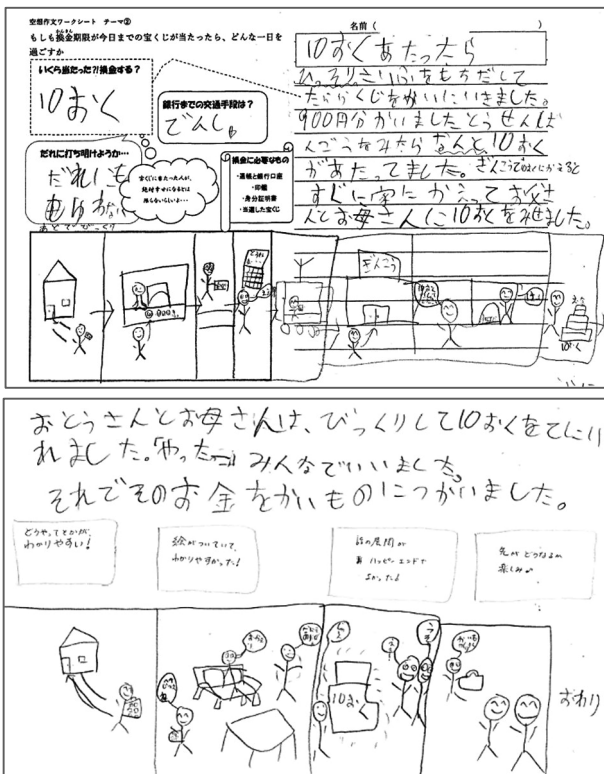 空想作文ワークシート テーマ②
もしも換金期限が今日までの宝くじが当たったら、どんな一日を
過ごすか
いくら当たった?!換金する?
10おく
銀行までの交通手段は?
でんしゃ
だれに打ち明けようか…
だれにも
あとでびっくり
宝くじに当たった人が、
絶対幸せになるとは
限らないらしいよ…
換金に必要なもの
・通帳と銀行口座
・印鑑
・身分証明書
・当選した宝くじ
名前( )
10おくあたったら
さいふをもちだして
たからくじをかいにいきました。
900円分かいましたとうせんば
んごうをみたらなんと10おく
があたってました。ぎんこうで
すぐに家にかえってお父さ
んとお母さんに10おくをみせました。
ぎんこう
10おく
おとうさんとお母さんは、びっくりして10おくをてにい
れました。「やったー」みんなでいいました。
それでそのお金をかいものにつかいました。
どうやってとかが、
わかりやすい!
絵がついていて、
わかりやすかった!
話の展開が
ハッピーエンドで
よかった!
先がどうなるか
楽しみ♪
10おく
おわり